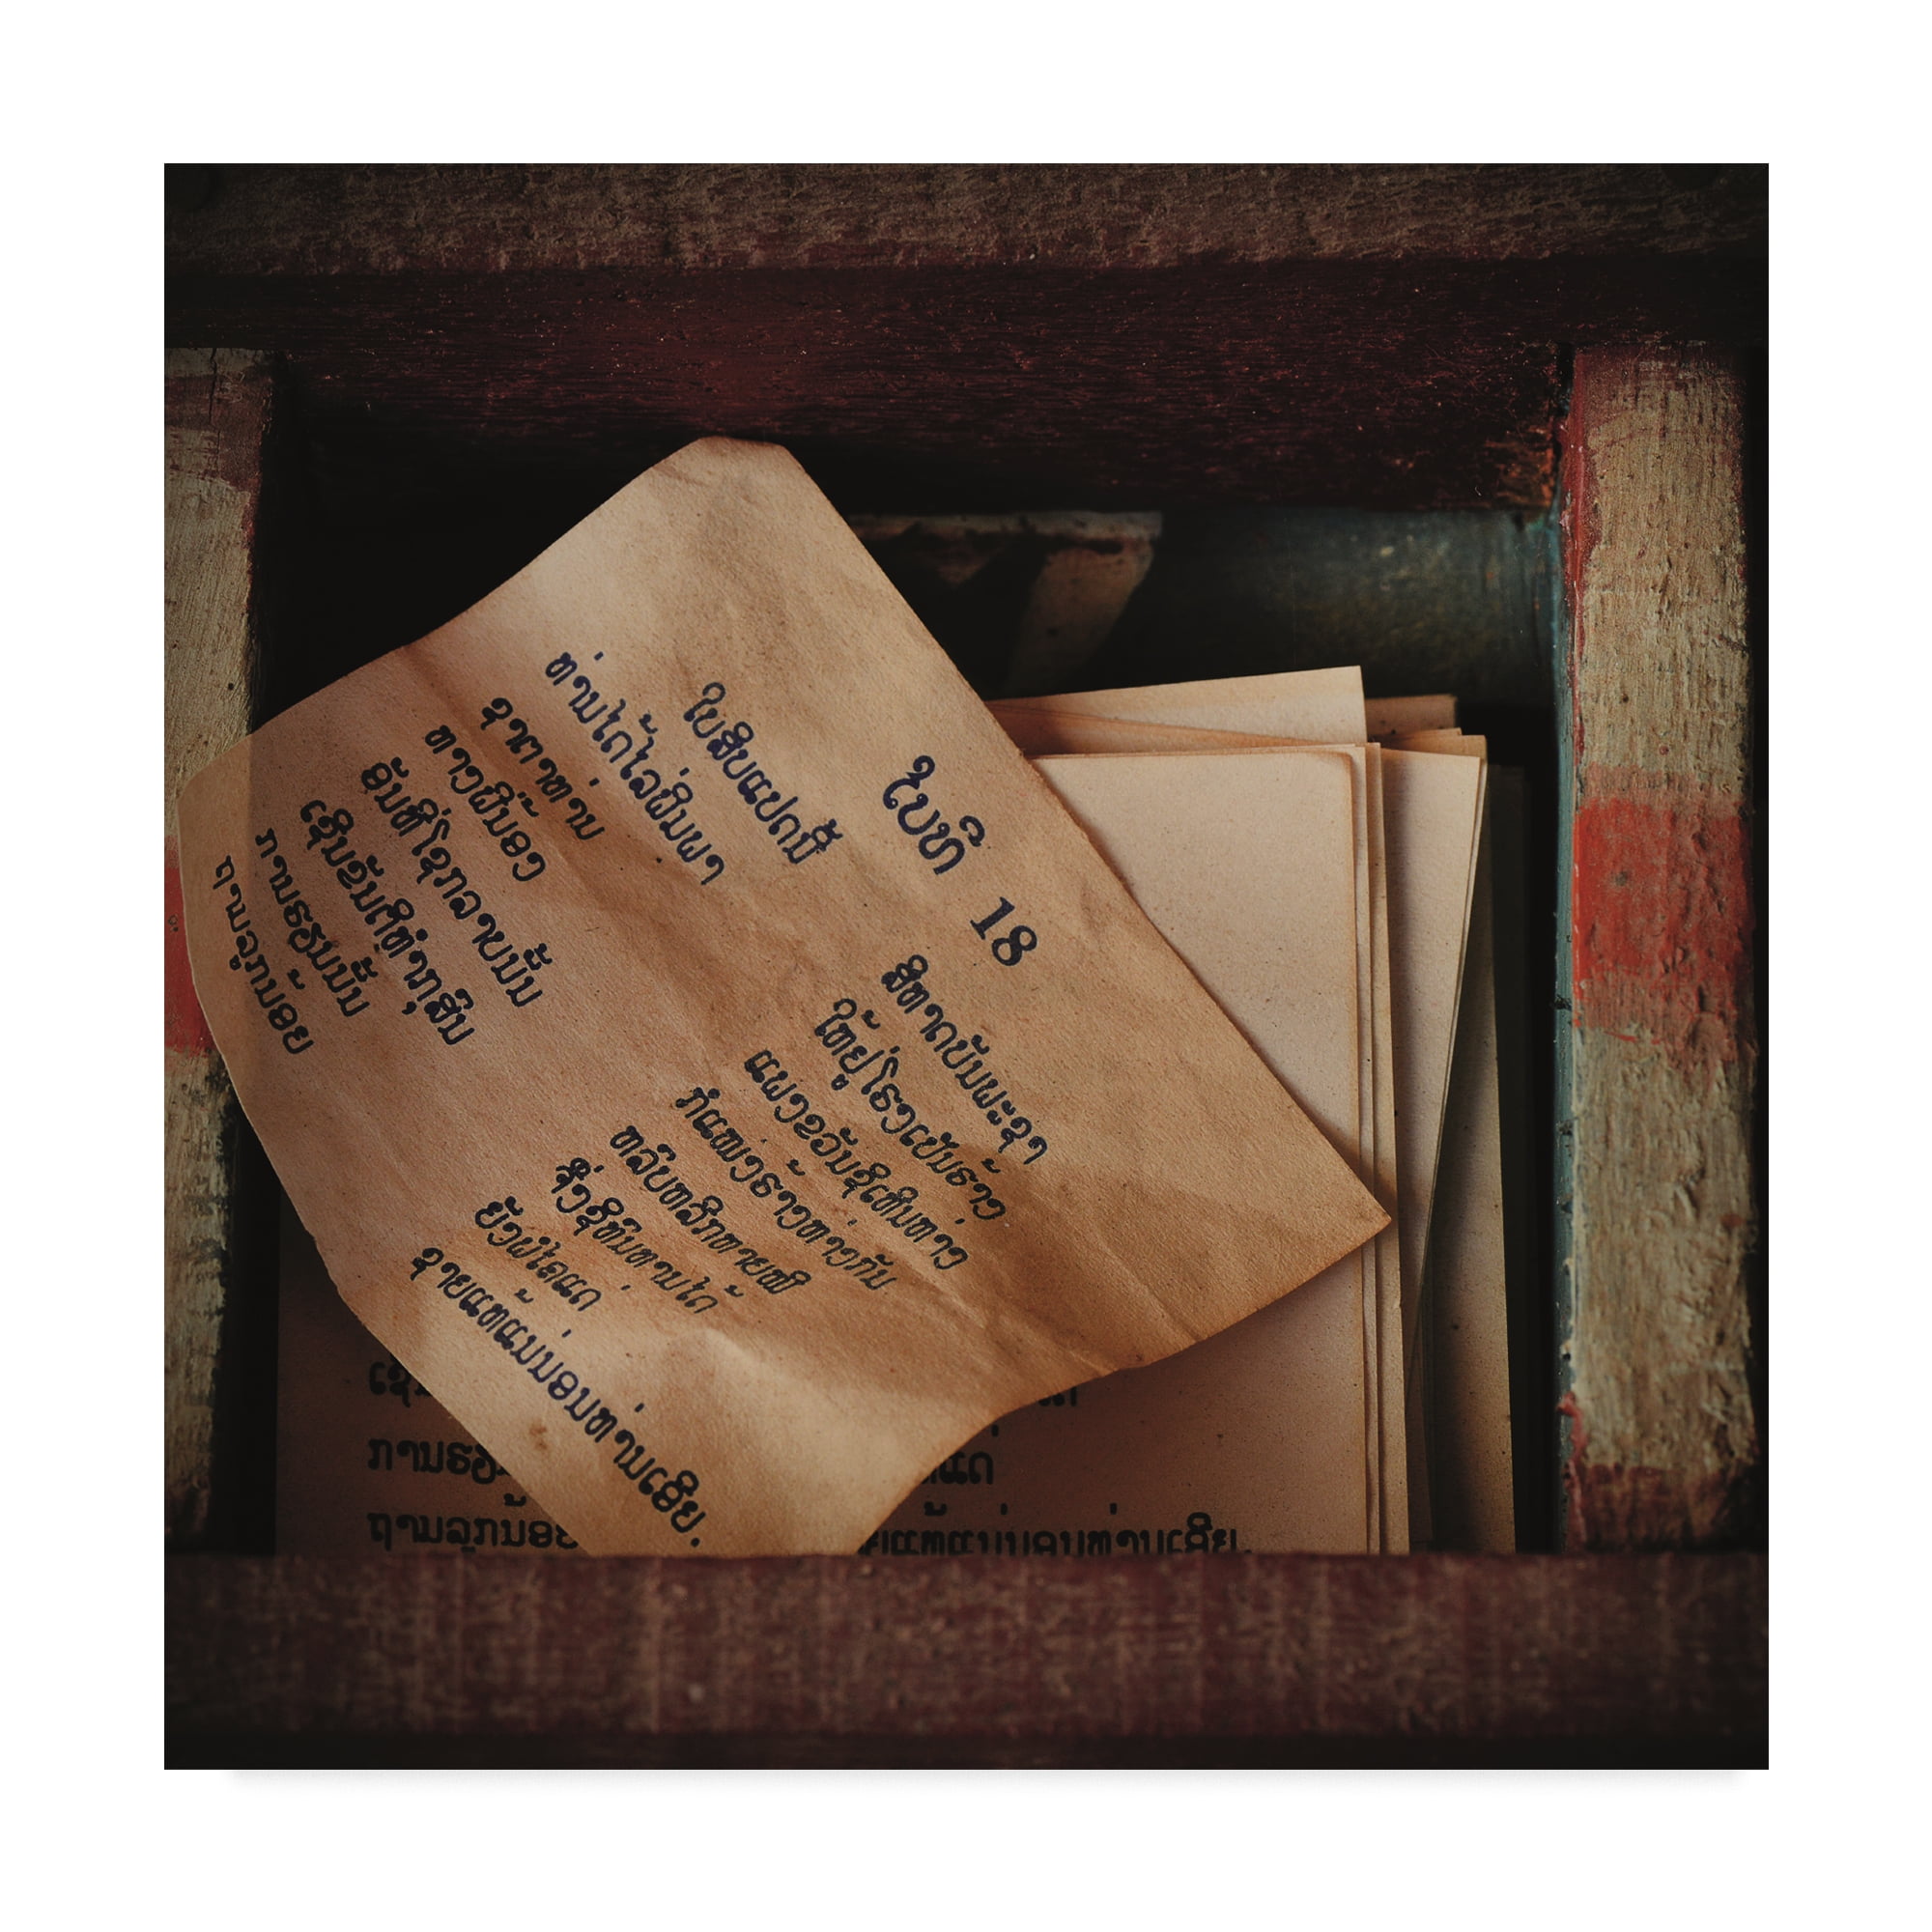 ໃບທີ 18
ໃບສິບແປດນີ້ ສິທາດບັນພະຊາ
ທ່ານໄດ້ໄລ່ຜິ່ນພາ ໃຫ້ຢູ່ໂຮງເປັນຮ້າງ
ຊາຕາທ່ານ ແພງຂວັນຊິເຫີນຫ່າງ
ທາງຜີ່ນ້ອງ ກໍແໜງຮ້າງຫ່າງກັນ
ອັນທີ່ໂຊກລາບນັ້ນ ຫລົບຫລີກຫາຍໜີ
ເຊີນຂັນຕິທຳກຸສົນ ສິ່ງຊິທົນທານໄດ້
ການຮຽນນັ້ນ ຍັງພໍໄຄແດ່
ຖານລູກນ້ອຍ ຊາຍແທ້ແມ່ນອນທ່ານເອີຍ.
ການຮຽນ ແດ່
ຖານລູກນ້ອຍ ຍແທ້ແມ່ນອນທ່ານເອີຍ.